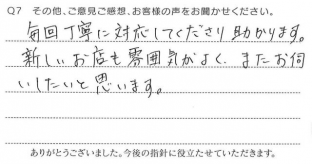 Q7 その他、ご意見ご感想、お客様の声をお聞かせください。
毎回丁寧に対応してくださり助かります。
新しいお店も雰囲気がよく、またお伺
いしたいと思います。
ありがとうございました。今後の指針に役立たせていただきます。